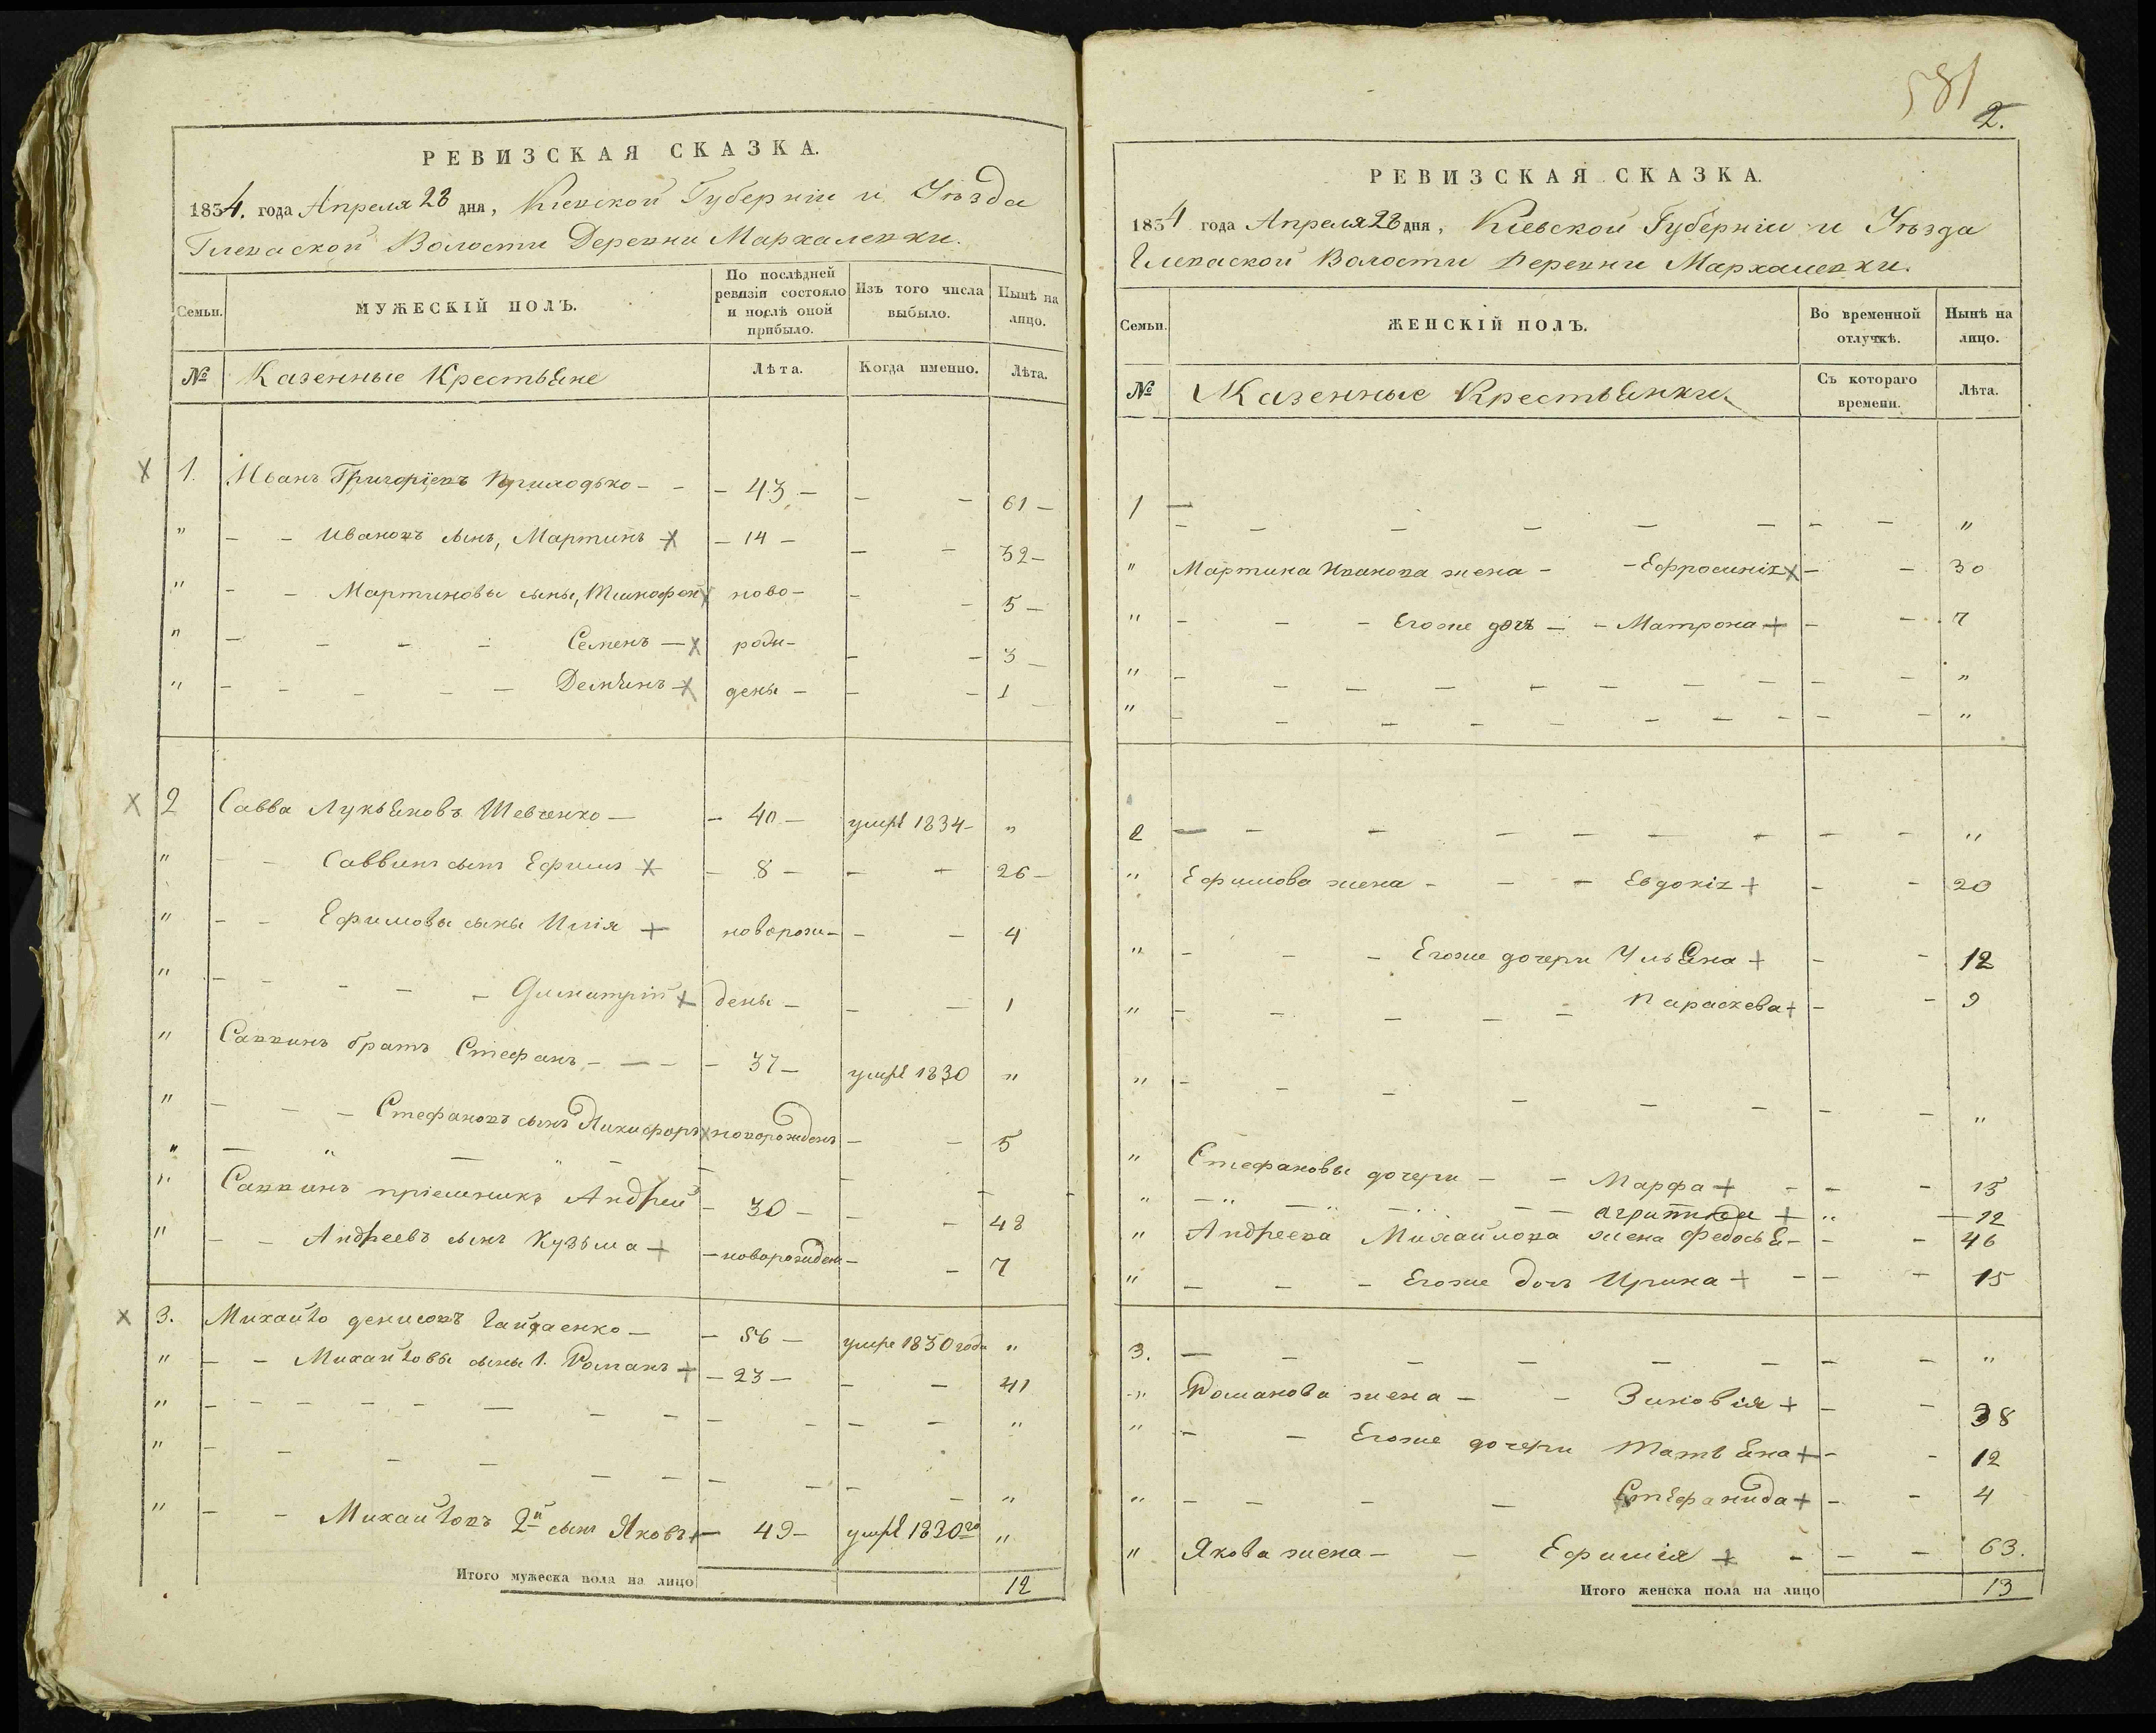 РЕВИЗСКАЯ СКАЗКА.
1834. года Апреля 28 дня, Кіевской Губерніи и Уѣзда
Глеваской Волости Деревни Мархалевки.
Семьи. МУЖЕСКІЙ ПОЛЪ. По послѣдней ревизіи состояло и послѣ оной прибыло. Изъ того числа выбыло. Нынѣ на лицо.
№ Казенные Крестьяне Лѣта. Когда именно. Лѣта.
1. Иванъ Григоріевъ Приходько - - - 43 - - - 61 -
" - - Ивановъ сынъ, Мартинъ - 14 - - - 32 -
" - - Мартиновы сыны, ново- - - 5 -
" - - - - Семенъ - роди- - - 3 -
" - - - - - Демьянъ - день - - - 1
2 Савва Лукьяновъ Шевченко - - 40 - умре 1834 - "
" - - Саввинъ сынъ Ефимъ - 8 - - - 26 -
" - - Ефимовы сыны Илія + новорож- - - 4
" - - - - - Димитрій + день - - - 1
" Саввинъ братъ Стефанъ - - - - 37 - умре 1830 "
" - - - Стефановъ сынъ Никифоръ новорожденъ - - 5
" - " - " - - - - -
" Саввинъ пріемникъ Андрей - 30 - - - 48
" - - Андреевъ сынъ Кузьма + - новорожден - - 7
3. Михайло Денисовъ Гайдаенко - - 56 - умре 1830 года "
" - - Михайловы сыны 1. Романъ + - 23 - - - 41
" - - - - - - - - - - - - - "
" - - - - - - - - - - "
" - - Михайловъ 2й сынъ Яковъ + - 49 - умре 1830го "
Итого мужеска пола на лицо 12
581
2.
РЕВИЗСКАЯ СКАЗКА.
1834 года Апреля 28 дня, Кіевской Губерніи и Уѣзда
Глеваской Волости Деревни Мархалевки.
Семьи. ЖЕНСКІЙ ПОЛЪ. Во временной отлучкѣ. Нынѣ на лицо.
№ Казенные Крестьянки. Съ котораго времени. Лѣта.
1 - - - - - - - - - "
" Мартина Иванова жена - - Ефросинія - - 30
" - - - Егоже дочь - - Матрона + - - 7
" - - - - - - - - - - "
" - - - - - - - - - - "
2 - - - - - - - - - "
" Ефимова жена - - - Евдокія + - - 20
" - - - Егоже дочери Ульяна + - - 12
" - - - - - Параскева + - - 9
" - - - - - - - - "
" Стефановы дочери - - Марфа + - - - 15
" - " - " - - Агрипина + " - 12
" Андреева Михайлова жена Федосья - - - 46
" - - - Егоже дочь Ирина + - - - 15
3. - - - - - - - - "
" Романова жена - - Зиновія + - - 38
" - - Егоже дочери Татьяна + - - 12
" - - - - Стефанида + - - 4
" Якова жена - - Ефимія + - - - 63.
Итого женска пола на лицо 13